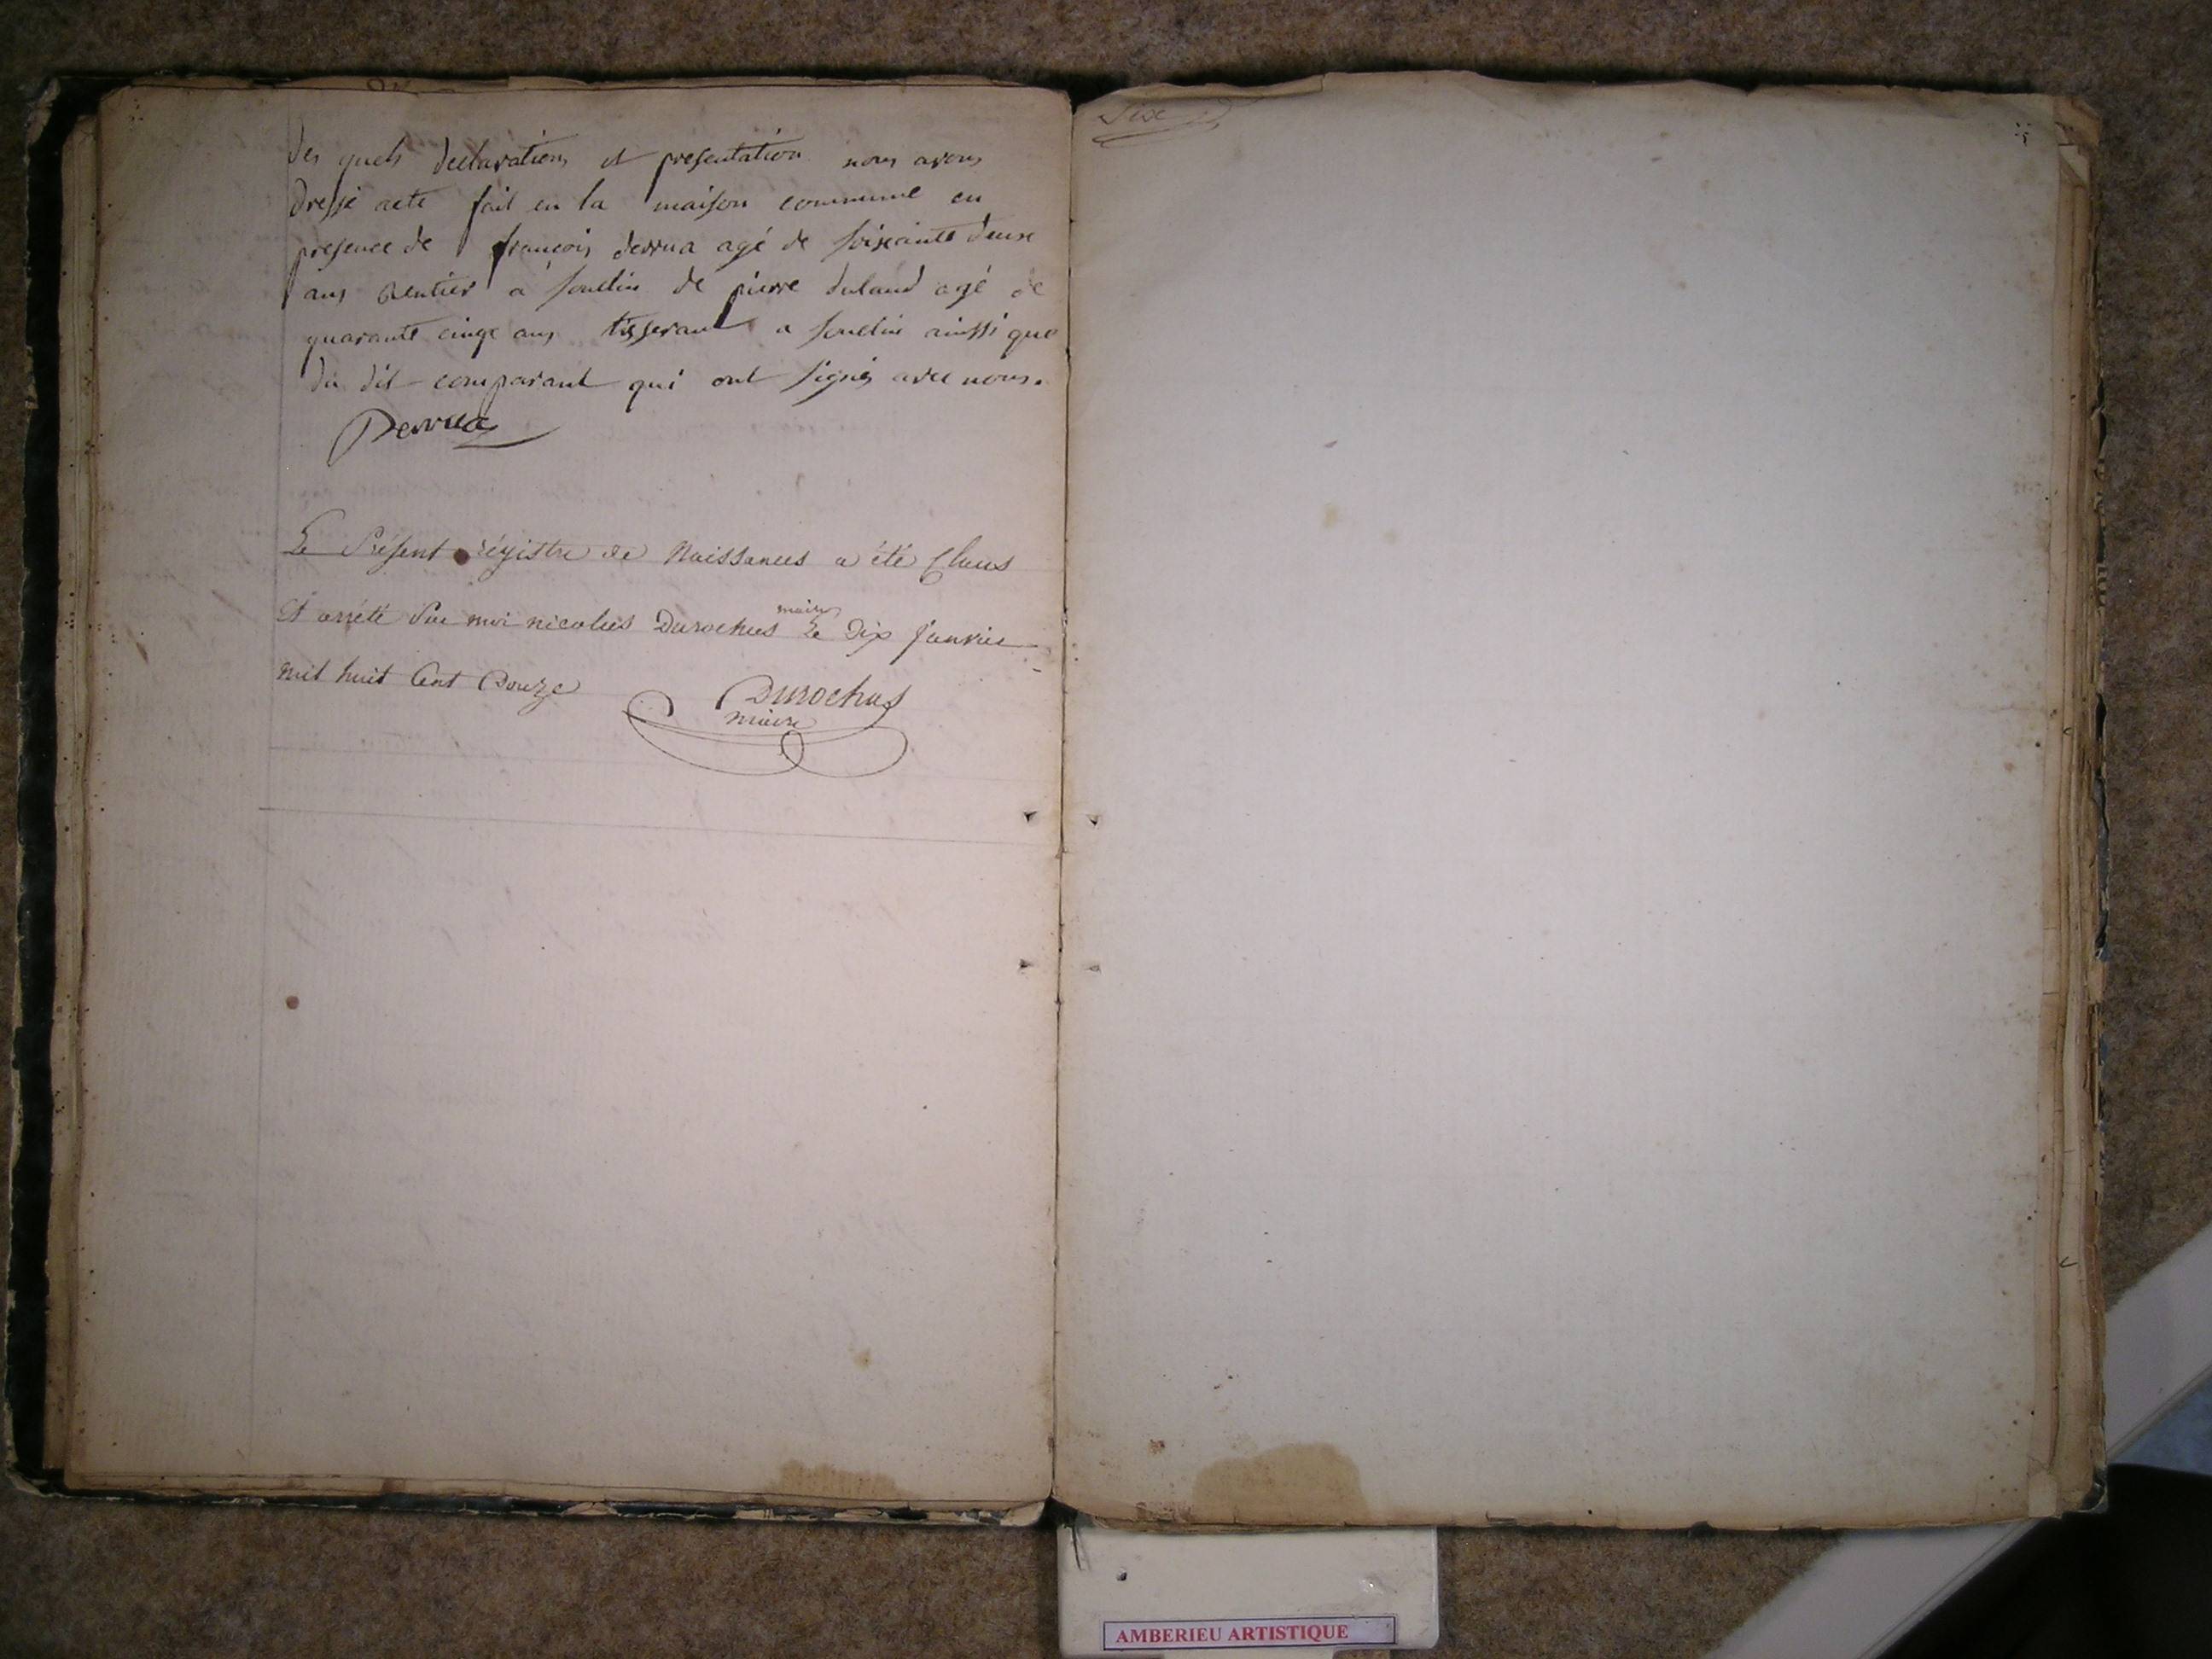 des quels declarations et presentation nous avons
dressé acte fait en la maison commune en
presence de francois derrua agé de soixante deux
ans rentier a soudin de pierre duland agé de
quarante cinqe ans tisserant a soudin ainssi que
du dit comparant qui ont signés avec nous.
Derrua
Le Présent régistre de Naissances a été Claus
Et arrété Par moi nicolas Durochas maire Le Dix Janvier
mil huit Cent Douze
Durochas
maire
Sixe
AMBERIEU ARTISTIQUE